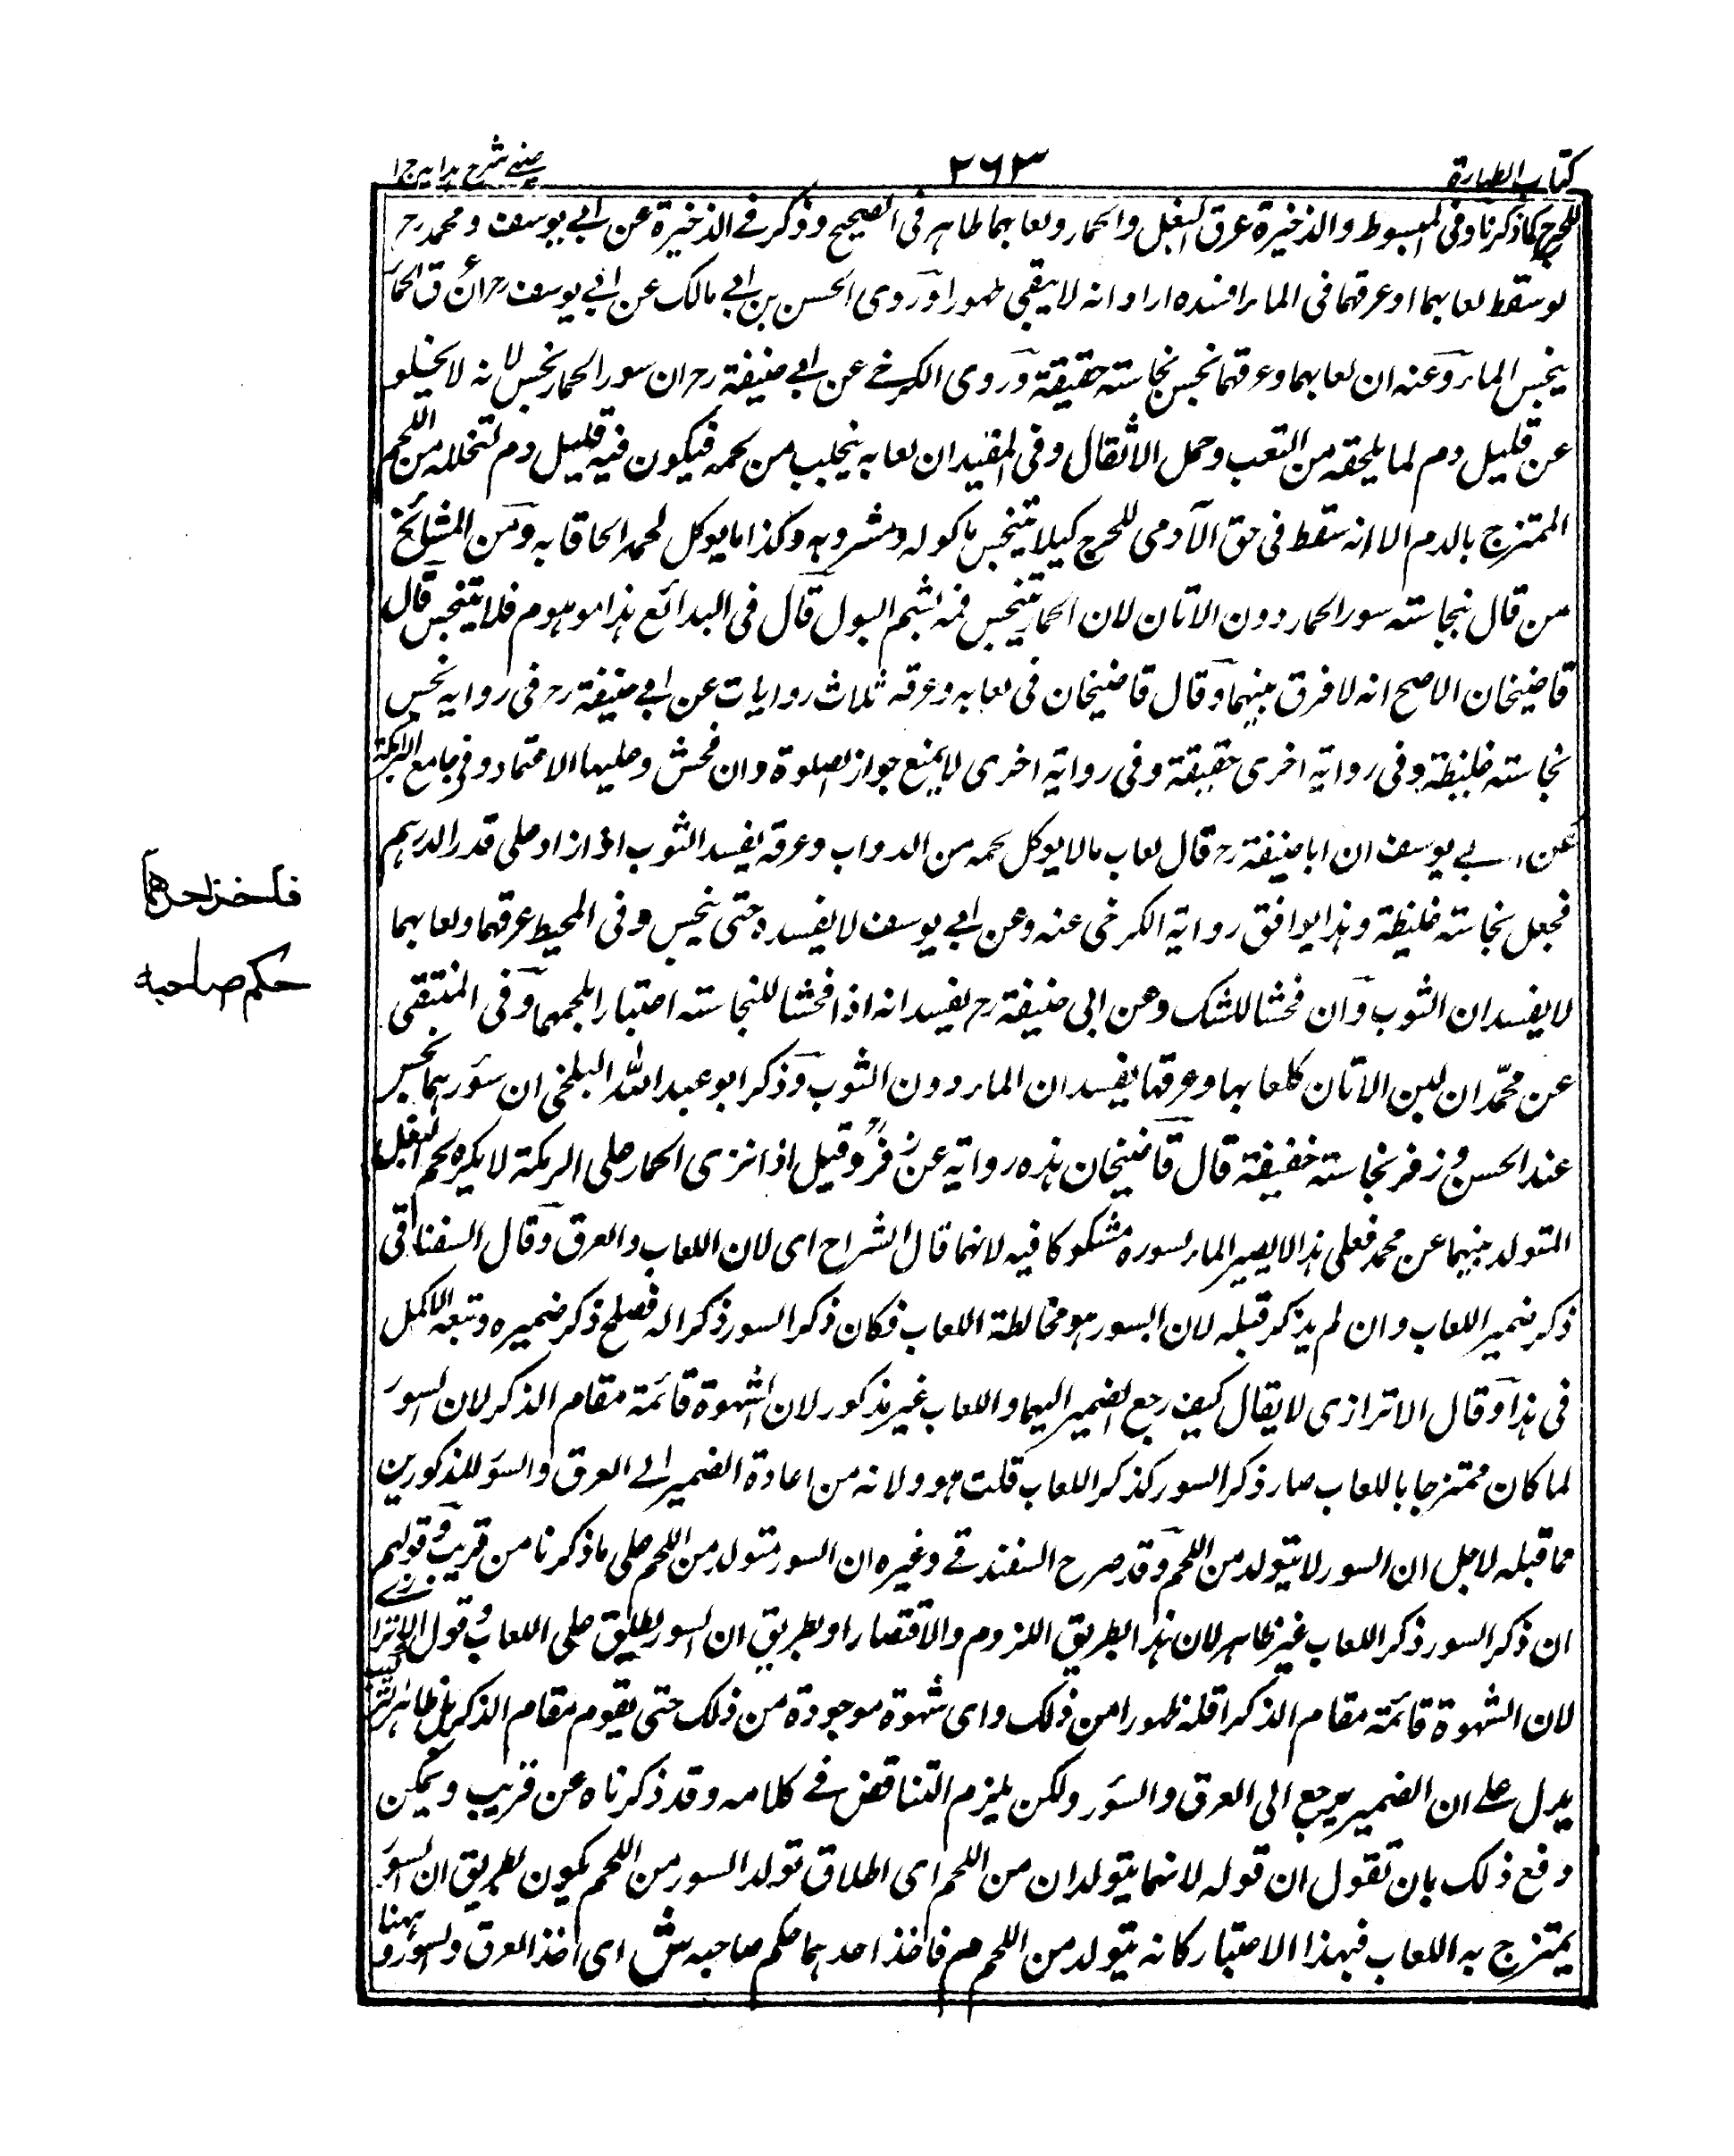 كتاب الطهارة
٢٦٣
عيني شرح هدايه ج ١
للحرج كما ذكرنا وفى المبسوط والذخيرة عرق البغل والحمار ولعابهما طاهر فى الصحيح وذكر في الذخيرة عن ابي يوسف ومحمد رح
لو سقط لعابهما او عرقهما فى الماء افسده اراد انه لا يبقى طهورا وروى الحسن بن ابي مالك عن ابي يوسف رح ان عرق الحمار
ينجس الماء وعنه ان لعابهما وعرقهما نجس نجاسته خفيفة وروى الكرخي عن ابي حنيفة رح ان سور الحمار نجس لانه لا يخلو
عن قليل دم لما يلحقه من التعب وحمل الاثقال وفى المفيد ان لعابه يتجلب من لحمه فيكون فيه قليل دم لتخلله من اللحم
الممتزج بالدم الا انه سقط فى حق الآدمى للحرج كيلا يتنجس ماكوله ومشروبه وكذا ما يوكل لحمه الحاقا به ومن المشائخ
من قال بنجاسته سور الحمار دون الاتان لان الحمار يتنجس فمه بشم البول قال فى البدائع هذا موهوم فلا يتنجس قال
قاضيخان الاصح انه لا فرق بينهما وقال قاضيخان فى لعابه وعرقه ثلاث روايات عن ابي حنيفة رح فى رواية نجس
نجاسته غليظة وفى رواية اخرى خفيفة وفى رواية اخرى لا يمنع جواز الصلوة وان فحش وعليها الاعتماد وفى جامع البرامكة
عن ابي يوسف ان ابا حنيفة رح قال لعاب ما لا يوكل لحمه من الدواب وعرقه يفسد الثوب اذا زاد على قدر الدرهم
فجعل نجاسته غليظة وهذا يوافق رواية الكرخى عنه وعن ابي يوسف لا يفسده حتى ينجس وفى المحيط عرقهما ولعابهما
لا يفسدان الثوب وان فحشا للشك وعن ابى حنيفة رح يفسدانه اذا فحشا للنجاسته اعتبارا بلحمهما وفى المنتقى
عن محمد ان لبن الاتان كلعابها وعرقها يفسدان الماء دون الثوب وذكر ابو عبد الله البلخى ان سؤرهما نجس
عند الحسن وزفر نجاسته خفيفة قال قاضيخان هذه رواية عن زفر وقيل اذا نزى الحمار على الرمكة لا يكره لحم البغل
المتولد بينهما عن محمد فعلى هذا لا يصير الماء بسوره مشكوكا فيه لانهما قال الشراح اى لان اللعاب والعرق وقال السغناقى
ذكر ضمير اللعاب وان لم يذكر قبله لان السور هو مخالطة اللعاب فكان ذكر السور ذكرا له فصلح ذكر ضميره وتبعه الاكمل
فى هذا وقال الاترازى لا يقال كيف رجع الضمير اليهما واللعاب غير مذكور لان الشهوة قائمة مقام الذكر لان السور
لما كان ممتزجا باللعاب صار ذكر السور كذكر اللعاب قلت هوولانه من اعادة الضمير الى العرق والسؤ للمذكورين
مما قبله لاجل ان السور لا يتولد من اللحم وقد صرح السغندقے وغيره ان السور متولد من اللحم على ما ذكرنا من قريب وقولهم
ان ذكر السور ذكر اللعاب غير ظاهر لان هذا بطريق اللزوم والاقتصار او بطريق ان السور يطلق على اللعاب وقول الاترازي
لان الشهوة قائمة مقام الذكر اقله ظهورا من ذلك واى شهوة موجودة من ذلك حتى يقوم مقام الذكر بل ظاهر التركيب
يدل على ان الضمير يرجع الى العرق والسؤر ولكن يلزم التناقض في كلامه وقد ذكرناه عن قريب ويمكن
دفع ذلك بان تقول ان قوله لانهما يتولدان من اللحم اى اطلاق تولد السور من اللحم يكون بطريق ان السور
يمتزج به اللعاب فبهذا الاعتبار كانه يتولد من اللحم م فاخذ احدهما حكم صاحبه ش اى اخذ العرق والسور وههنا
فاخذ احدهما
حكم صاحبه